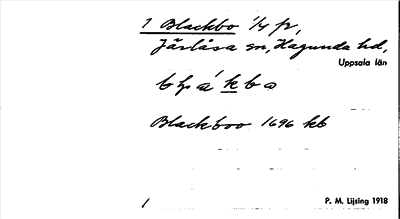 1 Blackbo 1/4 fr,
Järlåsa sn, Hagunda hd,
Uppsala län
Blackboo 1696 kb
/ P. M. Lijsing 1918